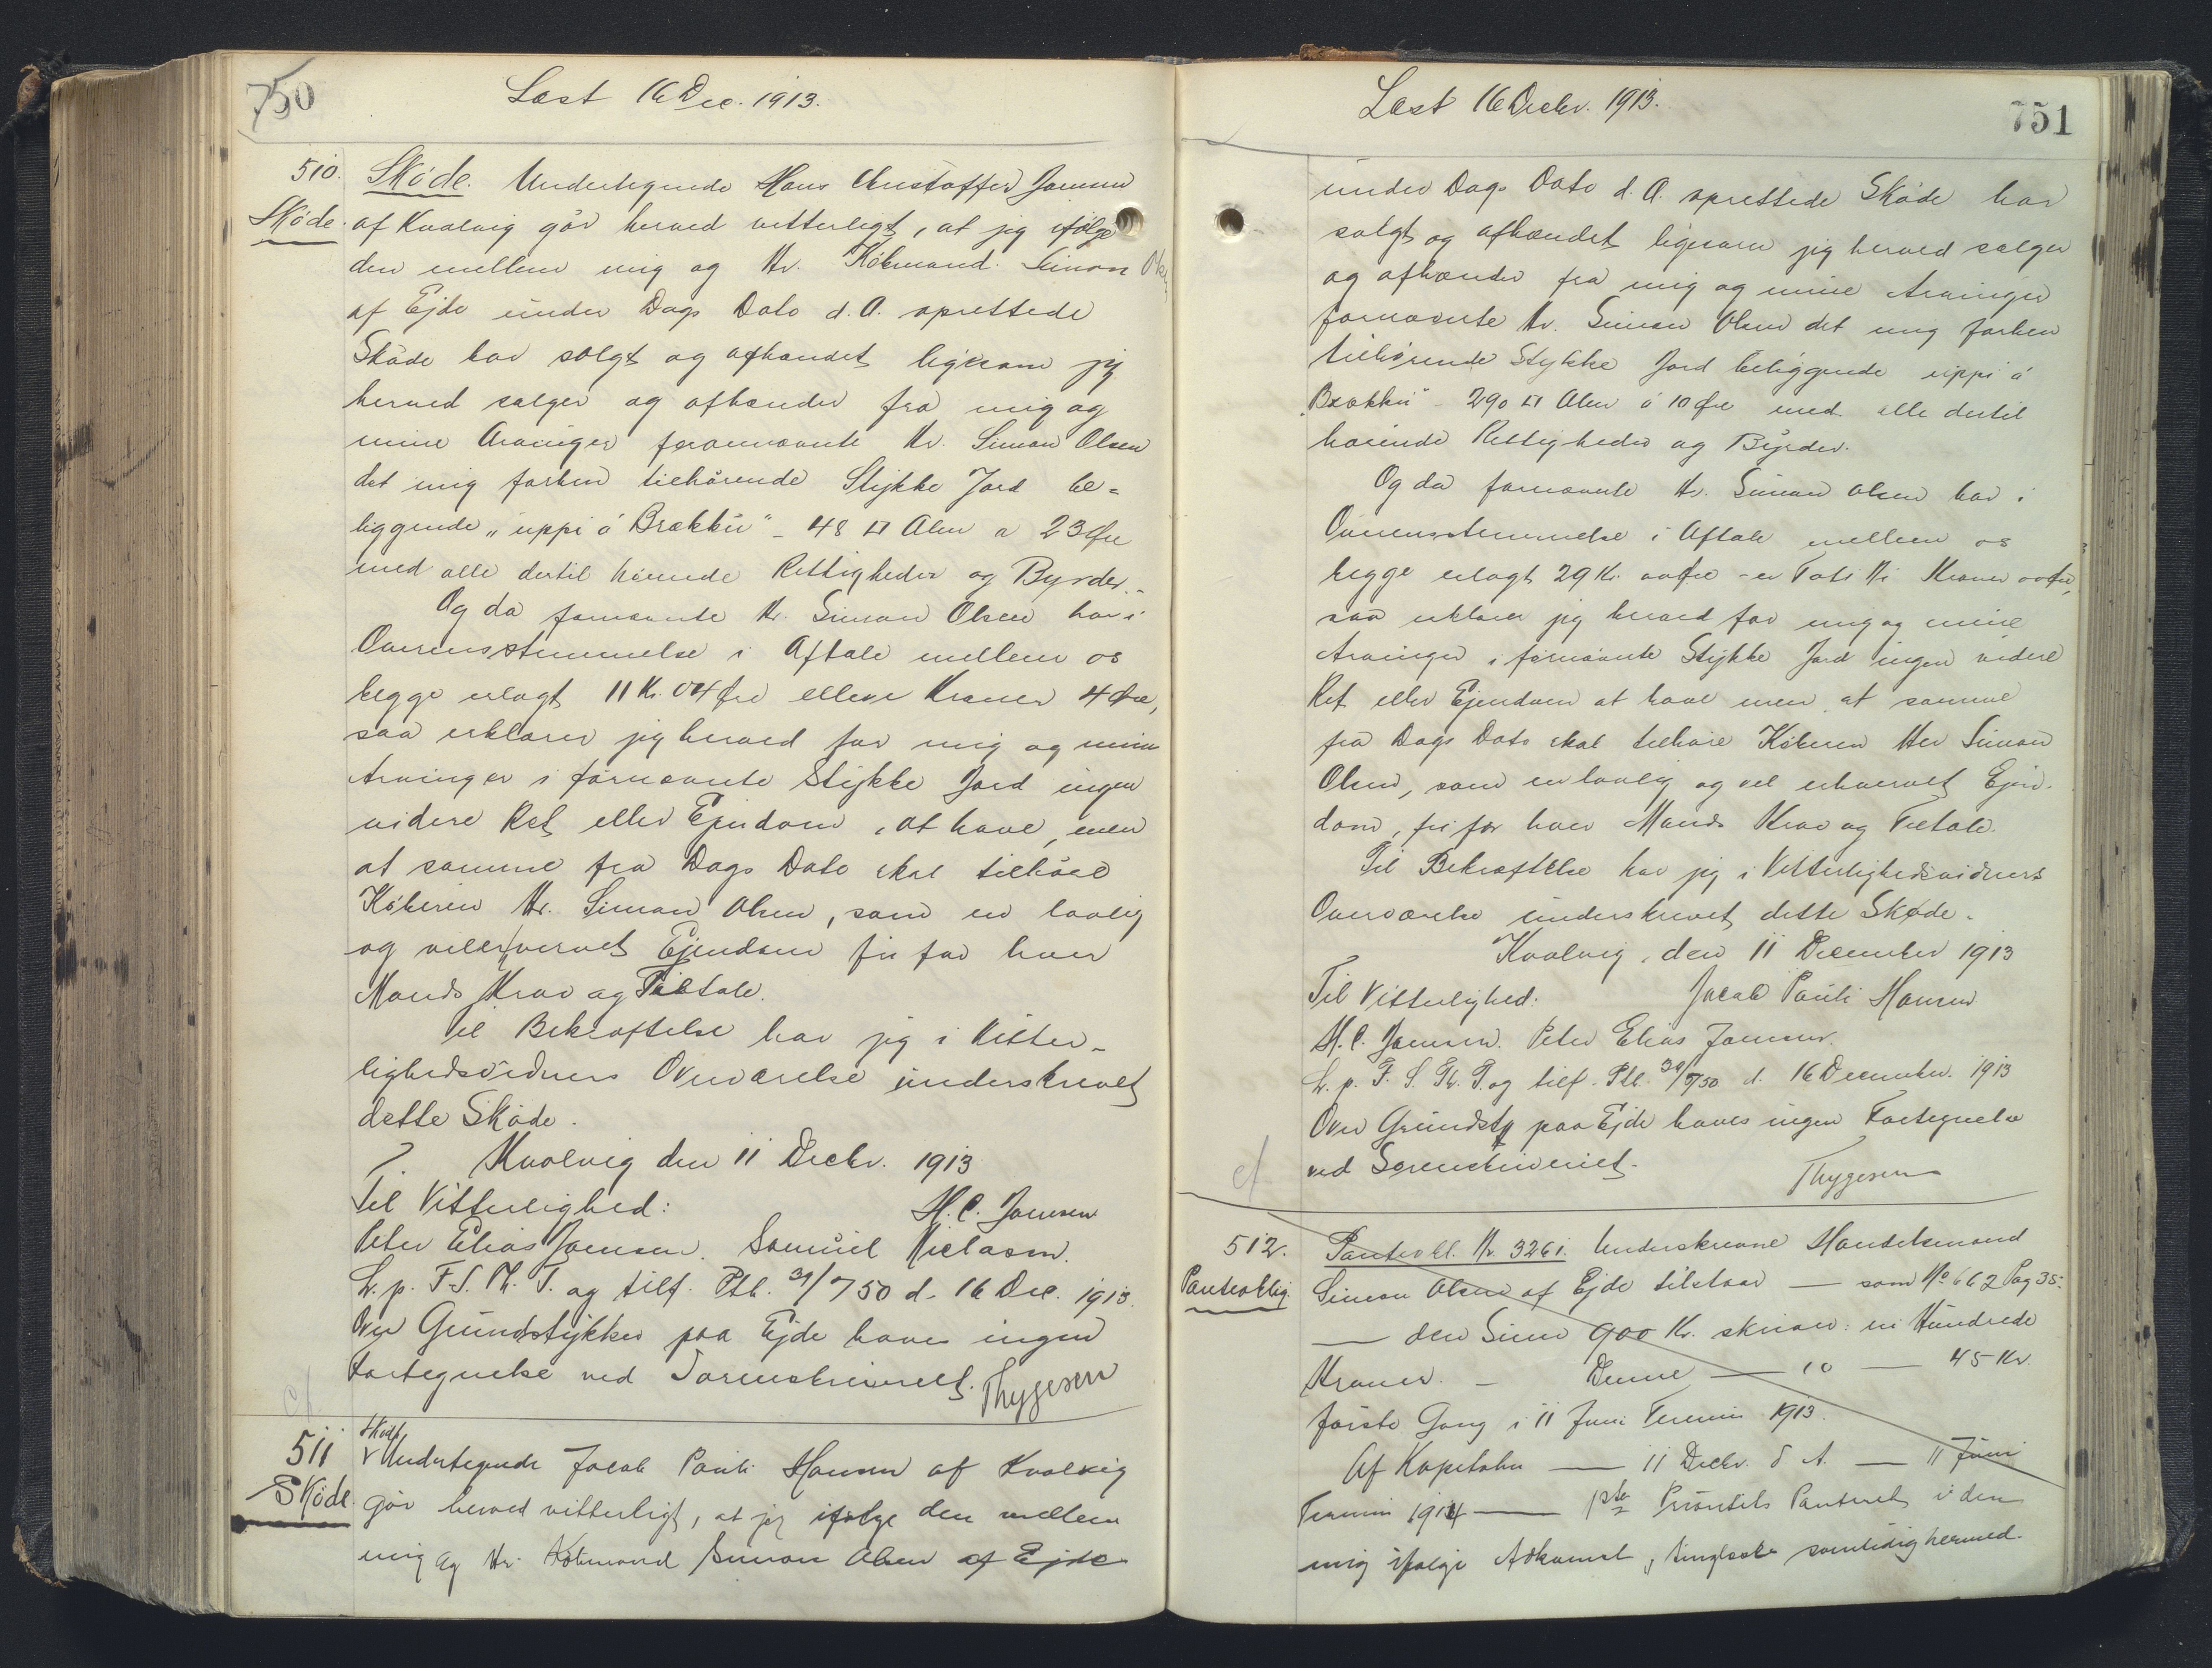 750
Læst 16 Dec. 1913.
510. Skøde. Undertegnede Hans Christoffer Joensen
Skøde. af Kvalvig gör herved vitterligt, at jeg ifølge
den mellem mig og Hr. Köbmand Simon
af Ejde under Dags Dato d. A. oprettede
Skøde har solgt og afhændet ligesom jeg
herved sælger og afhænder fra mig og
mine Arvinger fornævnte Hr. Simon Olsen
det mig forhen tilhørende Stykke Jord be-
liggende „uppi á Brækku" - 48 □ Alen a 23 Øre
med alle dertil hørende Rettigheder og Byrder.-
Og da fornævnte Hr. Simon Olsen har i
Overensstemmelse i Aftale mellem os
begge erlagt 11 Kr. 04 Øre elleve Kroner 4 Øre,
saa erklærer jeg herved for mig og mine
Arvinger i førnævnte Stykke Jord ingen
videre Ret eller Ejendom, at have, men
at samme fra Dags Dato skal tilhøre
Köberen Hr. Simon Olsen, som en lovlig
og velerhvervet Ejendom fri for hver
Mands Krav og Tiltale.
Til Bekræftelse har jeg i Vitter-
lighedsvidners Overværelse underskrevet
dette Skøde.
Kvalvig den 11 Decbr. 1913
Til Vitterlighed: H. C. Joensen
Peter Elias Joensen. Samuel Niclasen.
L. p. F. S. Th. T. og tilf. Ptb. 31/750 d. 16 Dec. 1913.
Over Grundstykker paa Ejde haves ingen
Fortegnelse ved Sorenskriveriet. Thygesen
cf
511 Skøde
Undertegnede Jacob Pauli Hansen af Kvalvig
Skøde. gör herved vitterligt, at jeg ifølge den mellem
mig og Hr. Købmand Simon Olsen af Ejde
Læst 16 Decbr. 1913.
751
under Dags Dato d. A. oprettede Skøde har
solgt og afhændet ligesom jeg herved sælger
og afhænder fra mig og mine Arvinger
fornævnte Hr. Simon Olsen det mig forhen
tilhørende Stykke Jord beliggende uppi á
„Brækku" - 290 □ Alen á 10 Øre med alle dertil
hørende Rettigheder og Byrder.
Og da fornævnte Hr. Simon Olsen har i
Overensstemmelse i Aftale mellem os
begge erlagt 29 Kr. 00 Øre - er Toti Ni Kroner 00 Øre,
saa erklærer jeg herved for mig og mine
Arvinger i førnævnte Stykke Jord ingen videre
Ret eller Ejendom at have men at samme
fra Dags Dato skal tilhøre Köberen Herr Simon
Olsen, som en lovlig og vel erhvervet Ejen-
dom, fri for hver Mands Krav og Tiltale.
Til Bekræftelse har jeg i Vitterlighedsvidners
Overværelse underskrevet dette Skøde.
Kvalvig, den 11 December 1913
Til Vitterlighed: Jacob Pauli Hansen
H. C. Joensen. Peter Elias Joensen.
L. p. F. S. Th. T. og tilf. Ptb. 30/750 d. 16 December 1913
Over Grundst. paa Ejde haves ingen Fortegnelse
cf ved Sorenskriveriet.
Thygesen
512. Panteobl. Nr. 3261. Underskrevne Handelsmand
Panteoblig. Simon Olsen af Ejde tilstaar — som No 662 Pag 35.
— den Sum 900 Kr. skriver: ni Hundrede
Kroner. - Denne — 10 — 45 Kr.
første Gang i 11 Juni Termin 1913.
Af Kapitalen — 11 Decbr. d. A. — 11 Juni
Termin 1914 — 1ste Prioritets Panteret i den
mig ifølge Adkomst, tinglæst samtidig hermed